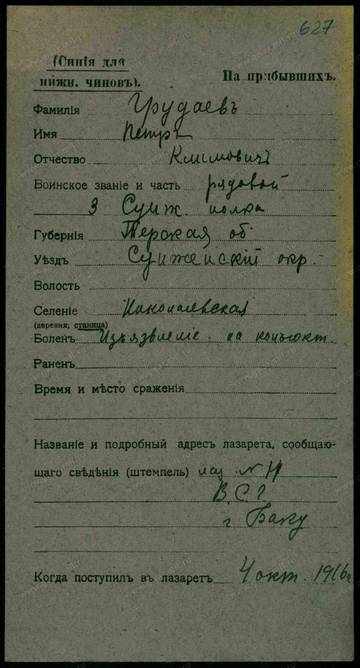 627
(Синія для
нижн. чиновъ).
На прибывшихъ.
Фамилія Грудаевъ
Имя Петръ
Отчество Климовичъ
Воинское званіе и часть рядовой
3 Сунж. полка
Губернія Терская об
Уѣздъ Сунженскій окр.
Волость
Селеніе Николаевская
(деревня, станица)
Боленъ Изъязвленіе на конъюкт.
Раненъ
Время и мѣсто сраженія
Названіе и подробный адресъ лазарета, сообщаю-
щаго свѣдѣнія (штемпель) лаз №
В.С.Г.
г. Баку
Когда поступилъ въ лазаретъ 4 окт. 1916